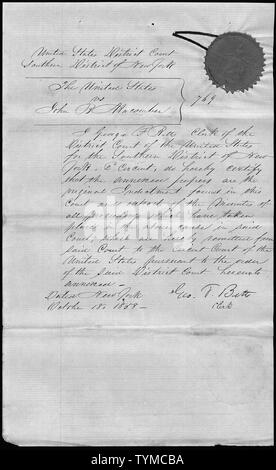 United States District Court
Southern District of New York
The United States
vs
John B. Macomber
769
I George F. Betts Clerk of the
District Court of the United States
for the Southern District of New
York do hereby certify
that the annexed papers are the
original Indictment found in this
Court and extract of the Minutes of
all proceedings which have taken
place in the above cause in said
Court
said Court to the Circuit Court of the
United States pursuant to the order
of the said District Court hereunto
annexed -
Dated New York
October 18, 1858 -
Geo. F. Betts
Clerk
alamy
TYMCBA